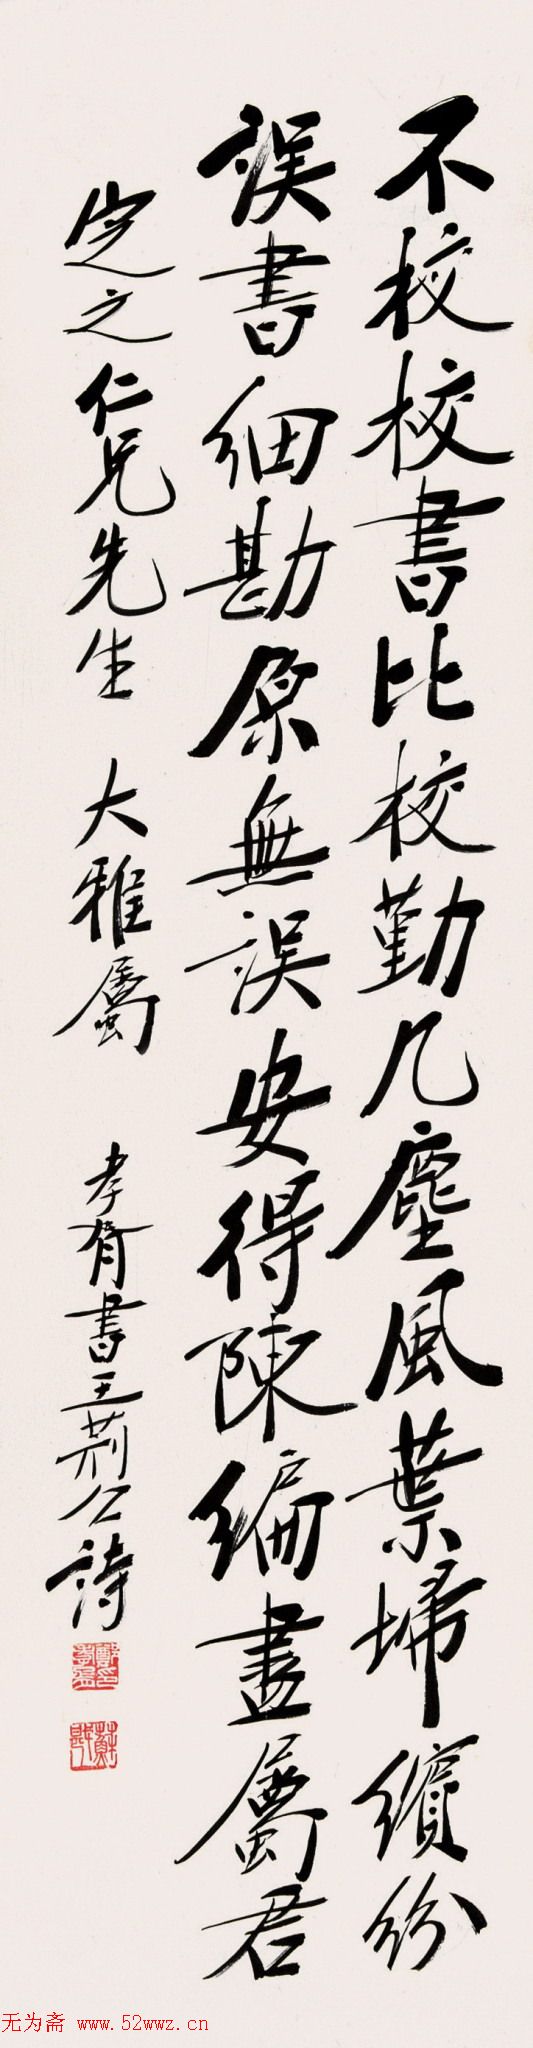 不校校書比校勤几塵風葉埽繽紛
誤書細勘原無誤安得陳編盡屬君
定之仁兄先生 大雅屬 孝胥書王荊公詩
鄭孝胥印
蘇戡
无为斋 www.52wwz.cn